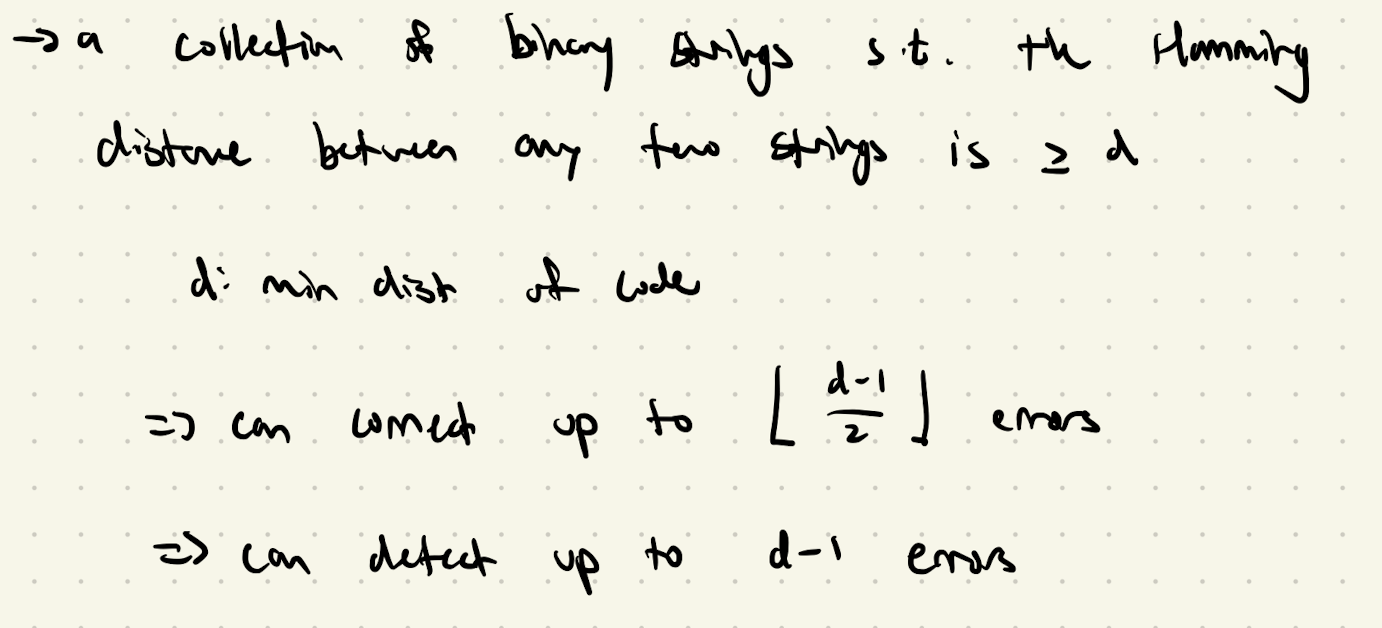 → a collection of binary strings s.t. the Hamming
distance between any two strings is ≥ d
d: min dist of code
=> can correct up to ⌊ d-1 / 2 ⌋ errors
=> can detect up to d-1 errors